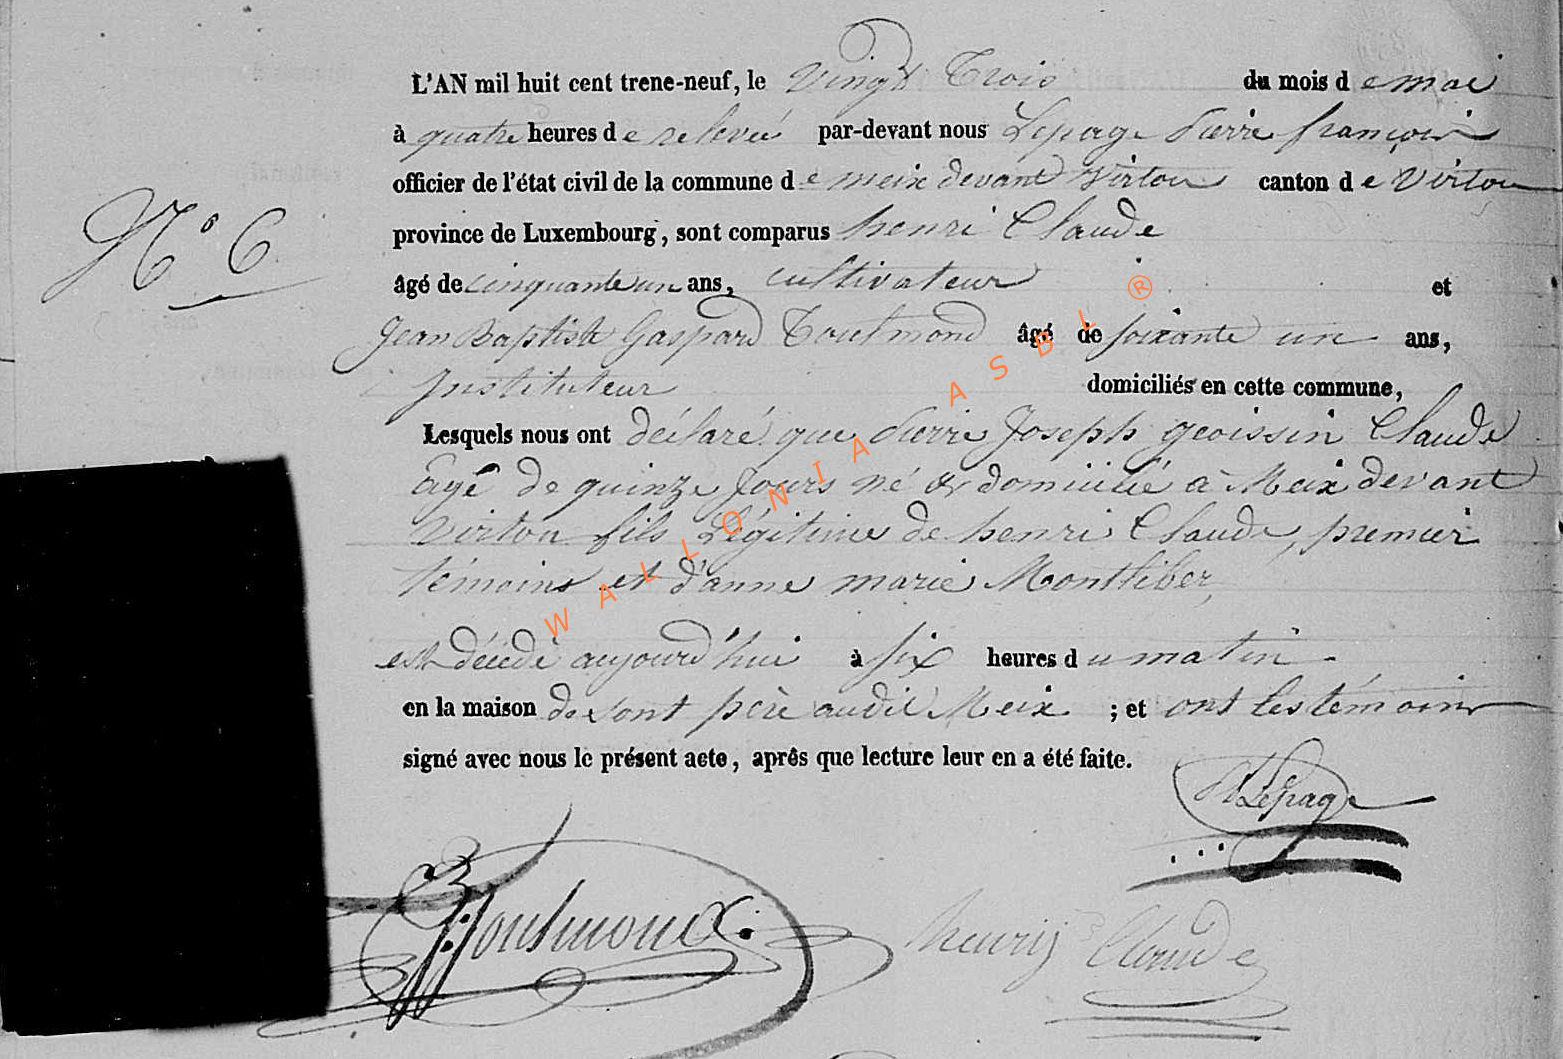 L'AN mil huit cent trene-neuf, le vingt Trois du mois de mai
à quatre heures de relevée par-devant nous Lepage Pierre françois
officier de l'état civil de la commune de meix devant Virton canton de Virton
N° 6
province de Luxembourg, sont comparus henri Claude
âgé de cinquante un ans, cultivateur et
Jean Baptiste Gaspard Toulmond âgé de soixante un ans,
Instituteur domiciliés en cette commune,
Lesquels nous ont déclaré que Pierre Joseph geoissin Claude
Agé de quinze Jours né & domicilié à Meix devant
Virton fils Légitime de henri Claude, premier
témoins et d'anne marie Montliber,
est décédé aujourd'hui à six heures du matin
en la maison de sont père audit Meix ; et ont les témoins
signé avec nous le présent acte, après que lecture leur en a été faite.
Lepage
Toulmond
henrij Claude
WALLONIA ASBL ®